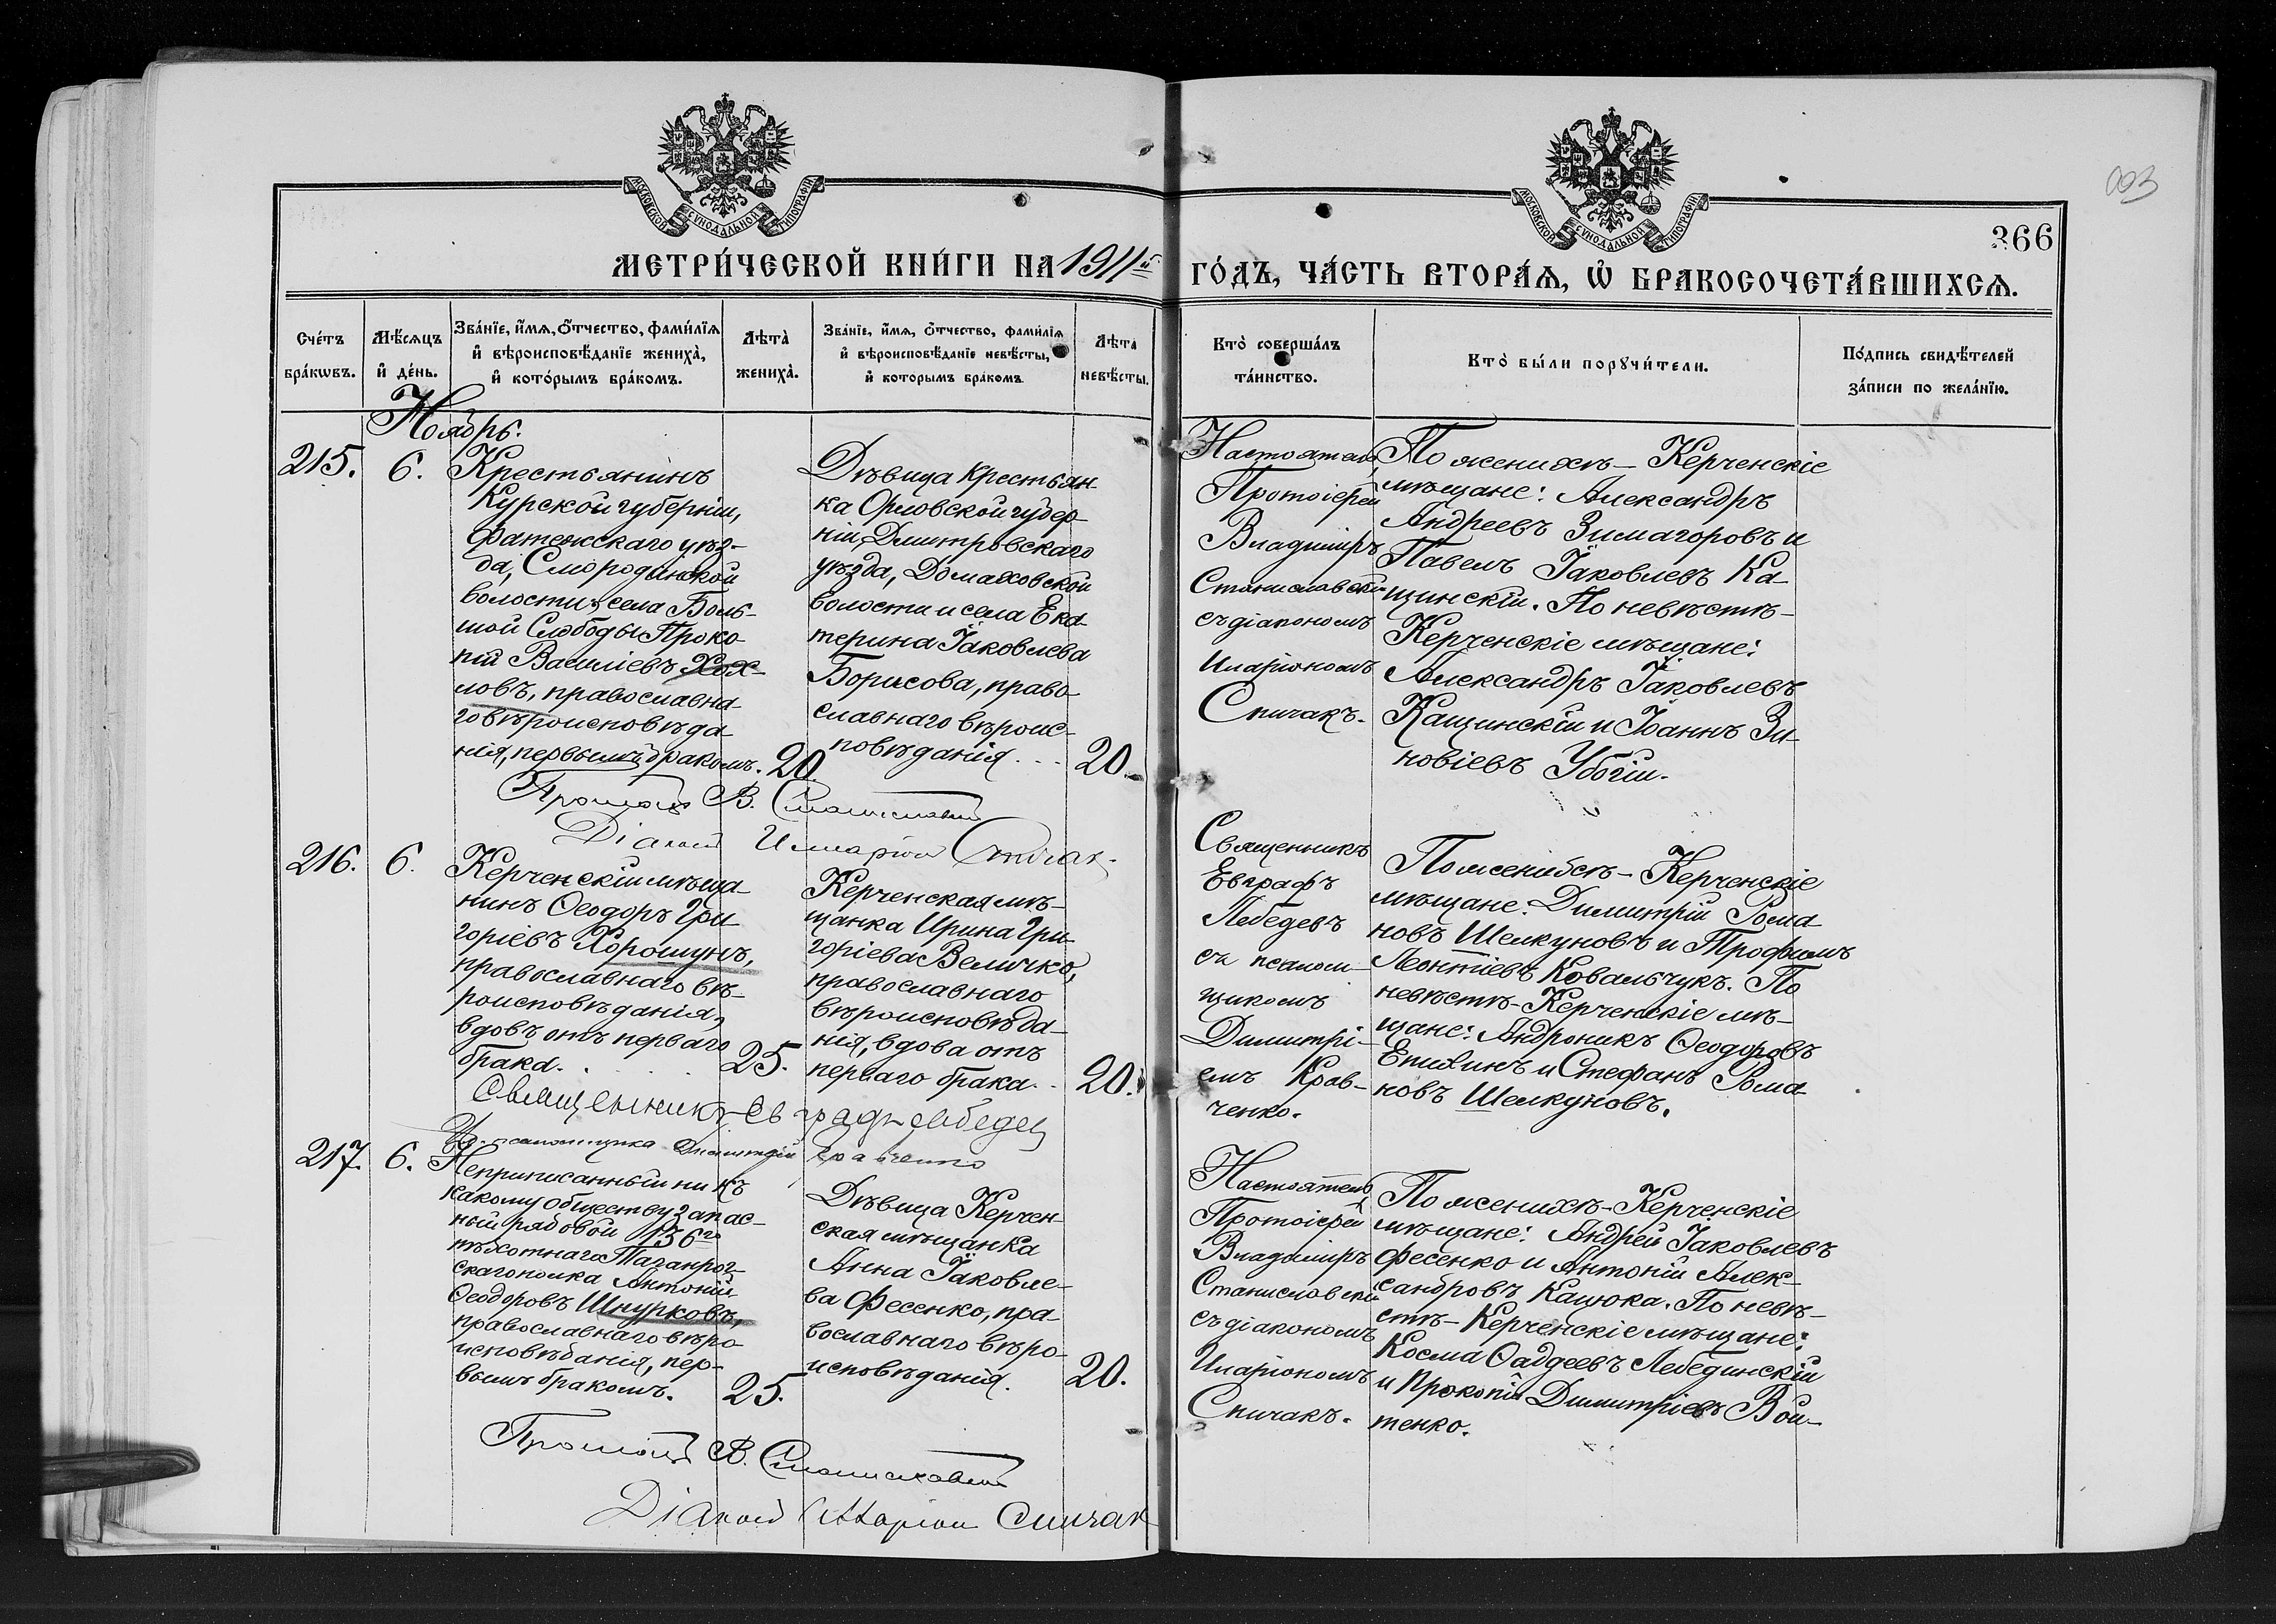 МОСКОВСКОЙ СѴНОДАЛЬНОЙ ТИПОГРАФІИ
МОСКОВСКОЙ СѴНОДАЛЬНОЙ ТИПОГРАФІИ
003
366
МЕТРИ́ЧЕСКОЙ КНИ́ГИ НА 1911й ГО́ДЪ, ЧА́СТЬ ВТОРА́Ѧ, Ѡ҆ БРАКОСОЧЕТА́ВШИХСѦ.
Сче́тъ
бра́кѡвъ.
Мѣ́сѧцъ
и҆ де́нь.
Зва́нїе, и҆́мѧ, ѻ҆́тчество, фами́лїѧ
и҆ вѣроисповѣ́данїе жениха̀,
и҆ кото́рымъ бра́комъ.
Лѣта̀
жениха̀.
Зва́нїе, и҆́мѧ, ѻ҆́тчество, фами́лїѧ
и҆ вѣроисповѣ́данїе невѣ́сты,
и҆ которымъ бра́комъ
Лѣта
невѣ́сты.
Кто̀ соверша́лъ
та́инство.
Кто̀ бы́ли порꙋчи́тели.
По́дпись свидѣ́телей
за́писи по жела́нїю.
Ноябрь.
215.
6.
Крестьянинъ
Курской губерніи,
Фатежскаго уѣз-
да, Смородинской
волости, села Боль-
шой Слободы Проко
пій Василіевъ Хох-
ловъ, православна
го вѣроисповѣда
нія, первымъ бракомъ.
20
Дѣвица крестьян
ка Орловской губер
ніи, Дмитровскаго
уѣзда, Домаховской
волости и села Ека
терина Іаковлева
Борисова, право
славнаго вѣроис-
повѣданія...
20.
Настоятель
Протоіерей
Владиміръ
Станиславскій
съ діакономъ
Иларіономъ
Спичакъ.
По женихѣ - Керченскіе
мѣщане: Александръ
Андреевъ Зимагоровъ и
Павелъ Іаковлевъ Ка
щинскій. По невѣстѣ -
Керченскіе мѣщане:
Александръ Іаковлевъ
Кащинскій и Іоаннъ Зи-
новіевъ Убогій.
В. Станиславскій
Діаконъ Иларіонъ Спичак.
216.
6.
Керченскій мѣща
нинъ Ѳеодоръ Гри
горіевъ Хорошунъ,
православнаго вѣ-
роисповѣданія,
вдовъ отъ перваго
брака.
25.
Керченская мѣ-
щанка Ирина Гри
горіева Величко,
православнаго
вѣроисповѣда-
нія, вдова отъ
перваго брака..
20.
Священникъ
Евграфъ
Лебедевъ
съ псалом-
щикомъ
Димитрі-
емъ Крав-
ченко.
По женихѣ - Керченскіе
мѣщане: Димитрій Рома
новъ Шелкуновъ и Трофимъ
Леонтіевъ Ковальчукъ. По
невѣстѣ - Керченскіе мѣ-
щане: Андроникъ Ѳеодоровъ
и Стефанъ Рома
новъ Шелкуновъ.
Священникъ Евграфъ Лебедев
псаломщика Димитрій Кравченко
217.
6.
Неприписанный ни къ
какому обществу запас-
ный рядовой 136го
пѣхотнаго Таганрог-
скаго полка Антоній
Ѳеодоровъ Шнурковъ,
православнаго вѣро
исповѣданія, пер-
вымъ бракомъ.
25.
Дѣвица Керчен-
ская мѣщанка
Анна Іаковле-
ва Фесенко, пра
вославнаго вѣро-
исповѣданія.
20.
Настоятель
Протоіерей
Владиміръ
Станиславскій
съ діакономъ
Иларіономъ
Спичакъ.
По женихѣ - Керченскіе
мѣщане: Андрей Іаковлевъ
Фесенко и Антоній Алек-
сандровъ Кацюка. По невѣ-
стѣ - Керченскіе мѣщане:
Косма Ѳаддеевъ Лебединскій
и Прокопій Димитріевъ Вой-
тенко.
В. Станиславскій
Діаконъ Иларіон Спичак